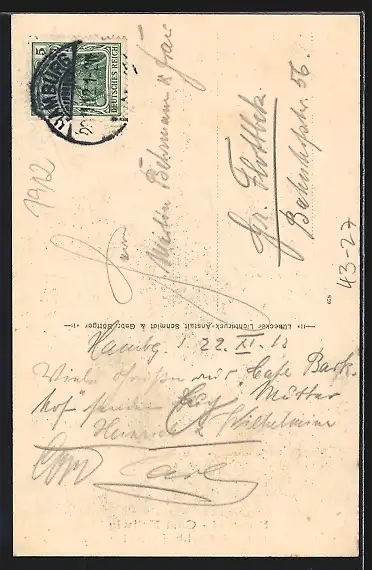 HAMBURG
DEUTSCHES REICH
5
1912
Herrn
Martin Behrmann & Frau
Gr. Flottbek
Bahnhofstr. 56.
43-27
Lübecker Lichtdruck-Anstalt Schmidt & Gebr. Böttger
Hambg, 22. XI. 12
Viele Grüße aus Café Bark-
hof senden Mutter
Heinrich & Wilhelmine
Carl